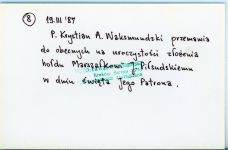 8 19.III '87
P. Krystian A. Waksmundzki przemawia
do obecnych na uroczystości złożenia
hołdu Marszałkowi J. Piłsudskiemu
w dniu święta Jego Patrona.